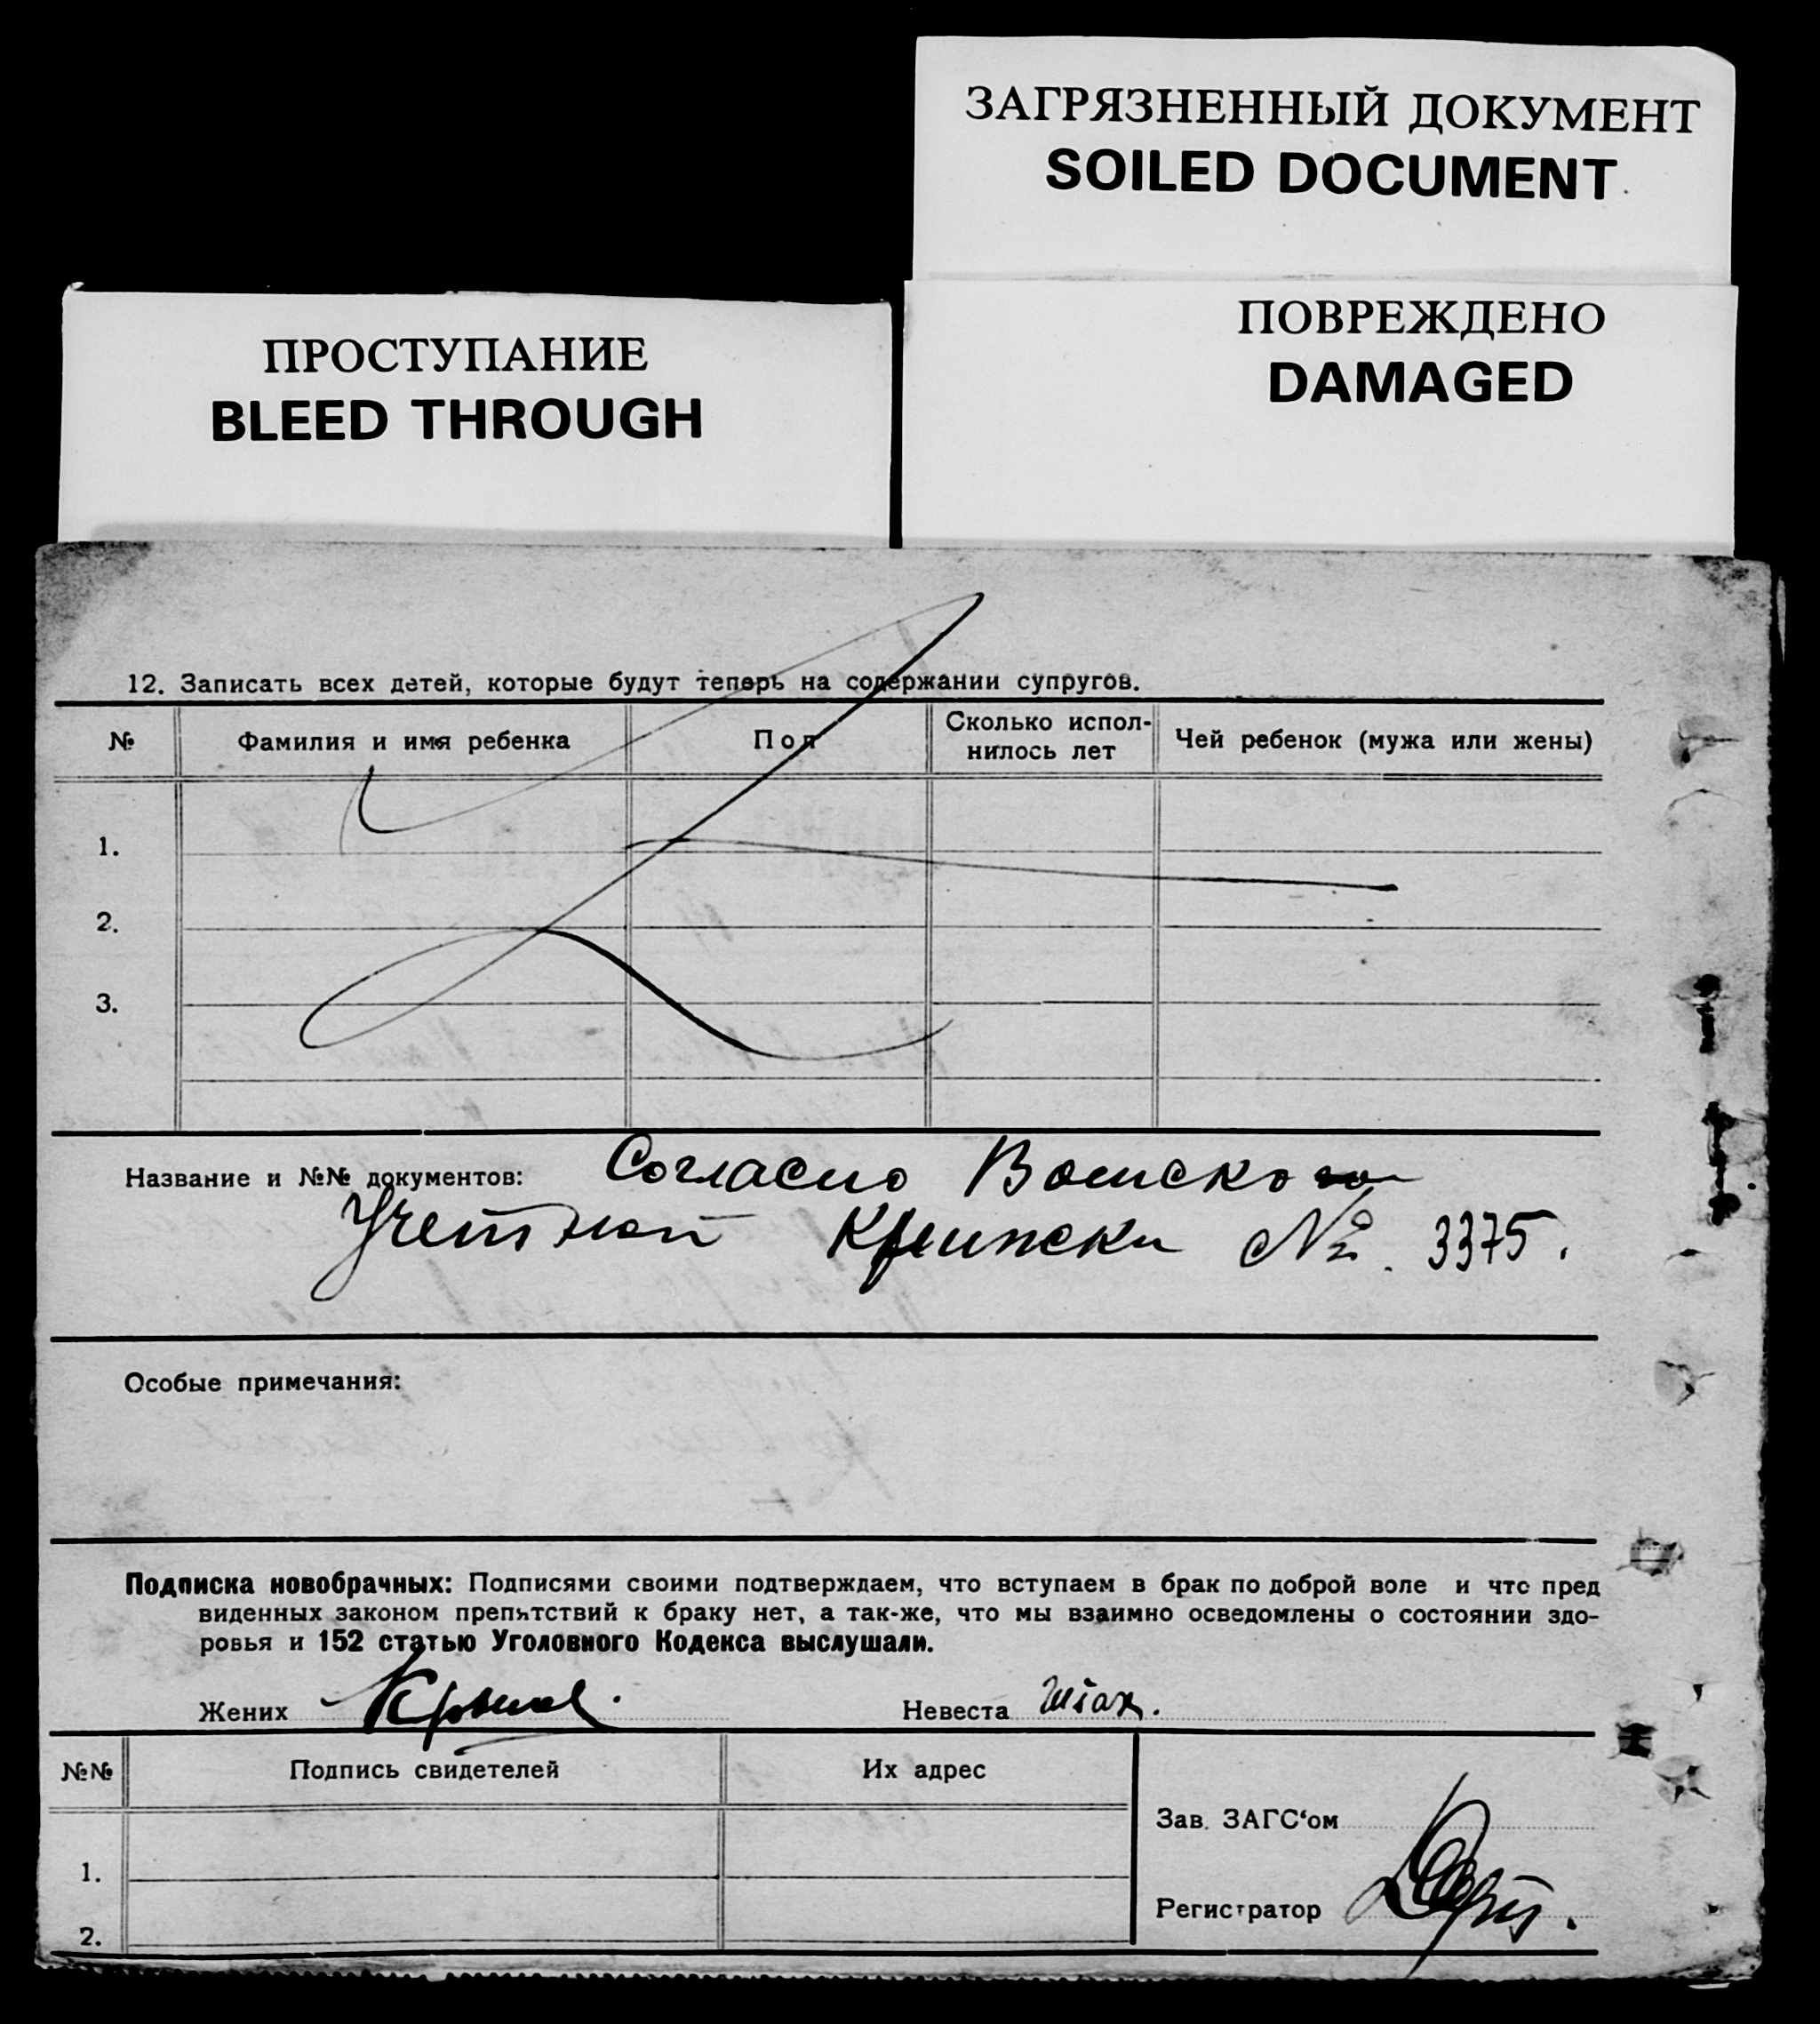 ЗАГРЯЗНЕННЫЙ ДОКУМЕНТ
SOILED DOCUMENT
ПРОСТУПАНИЕ
BLEED THROUGH
ПОВРЕЖДЕНО
DAMAGED
12. Записать всех детей, которые будут теперь на содержании супругов.
№ Фамилия и имя ребенка Пол Сколько испол-нилось лет Чей ребенок (мужа или жены)
1.
2.
3.
Название и №№ документов: Согласно Воинской
Учетной Книжки № 3375.
Особые примечания:
Подписка новобрачных: Подписями своими подтверждаем, что вступаем в брак по доброй воле и что пред
виденных законом препятствий к браку нет, а так-же, что мы взаимно осведомлены о состоянии здо-
ровья и 152 статью Уголовного Кодекса выслушали.
Жених Невеста
№№ Подпись свидетелей Их адрес
Зав. ЗАГС'ом
1.
Регистратор
2.